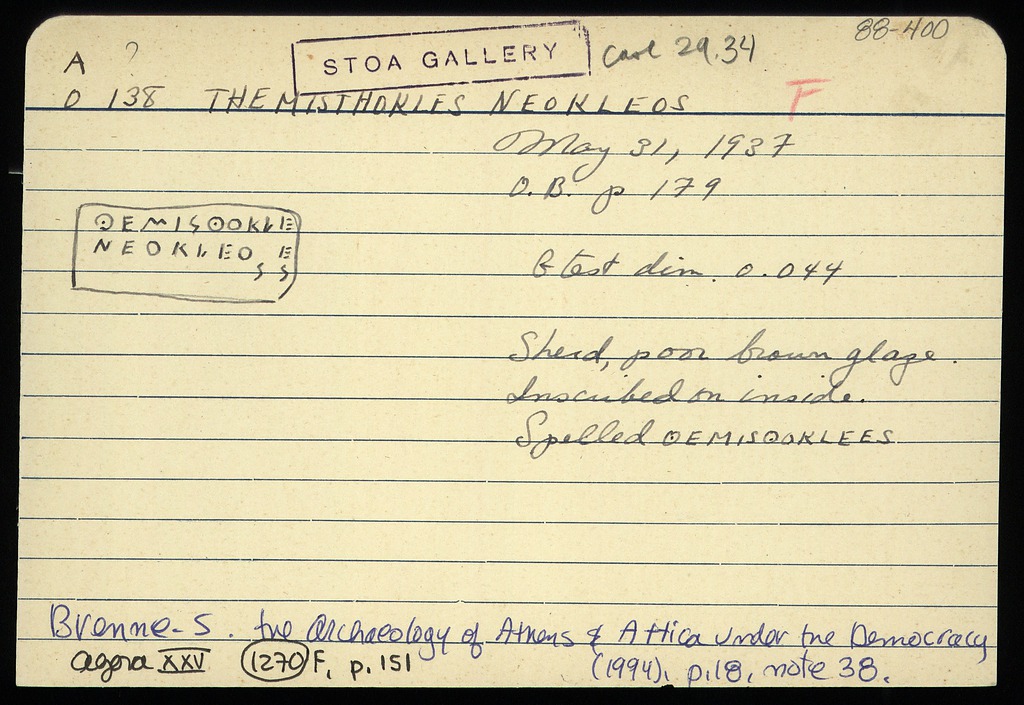 88-400
A ? STOA GALLERY Card 29.34
O 138 THEMISTHOKLES NEOKLEOS F
May 31, 1937
O.B. p 179
ΘEMISΘOKLE
NEOKLEO, E
S S
Gtest dim. 0.044
Sherd, poor brown glaze.
Inscribed on inside.
Spelled ΘEMISΘOKLEES
Brenne-S. the Archaeology of Athens & Attica under the Democracy
(1994), p.18, note 38.
agora XXV 1270 F, p. 151